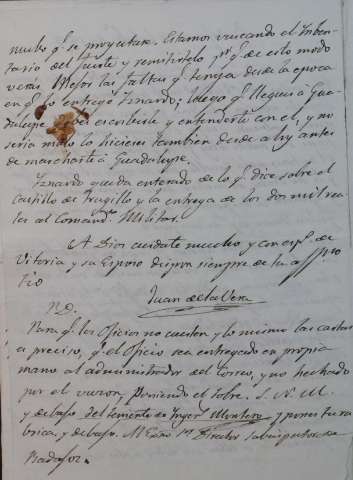 nuebo q.e se proyectare. Estamos buscando el Inben-
tario del fuerte y remitirtelo p.r q.e de este modo
veras mejor las faltas q.e tenga desde la epoca
en q.e lo entregó Fznardo; luego q.e llegues a Gua-
dalupe escribirle y entenderte con el, y no
seria malo lo hicieses tambien desde ahy antes
de marcharte á Guadalupe.
queda enterado de lo q.e dice sobre el
Castillo de Trugillo y la entrega de los dos mil rea-
les al Comand.te Militar.
A Dios cuidate mucho y con esp.s de
Vitoria y su Esposo dispon siempre de tu af.mo
Tio
Juan de la Vera
P.D.
Para q.e los Oficios no cuesten y lo mismo las cartas
es preciso, q.e el Oficio sea entregado en propia
mano al administrador del Correo, y no hechado
por el buzon, poniendo el sobre. S. N. M.
y debajo del teniente de Ingen.s Montero y pones tu ru-
brica, y debajo. Al Exmo S.or Director Subinspector
Badajoz.